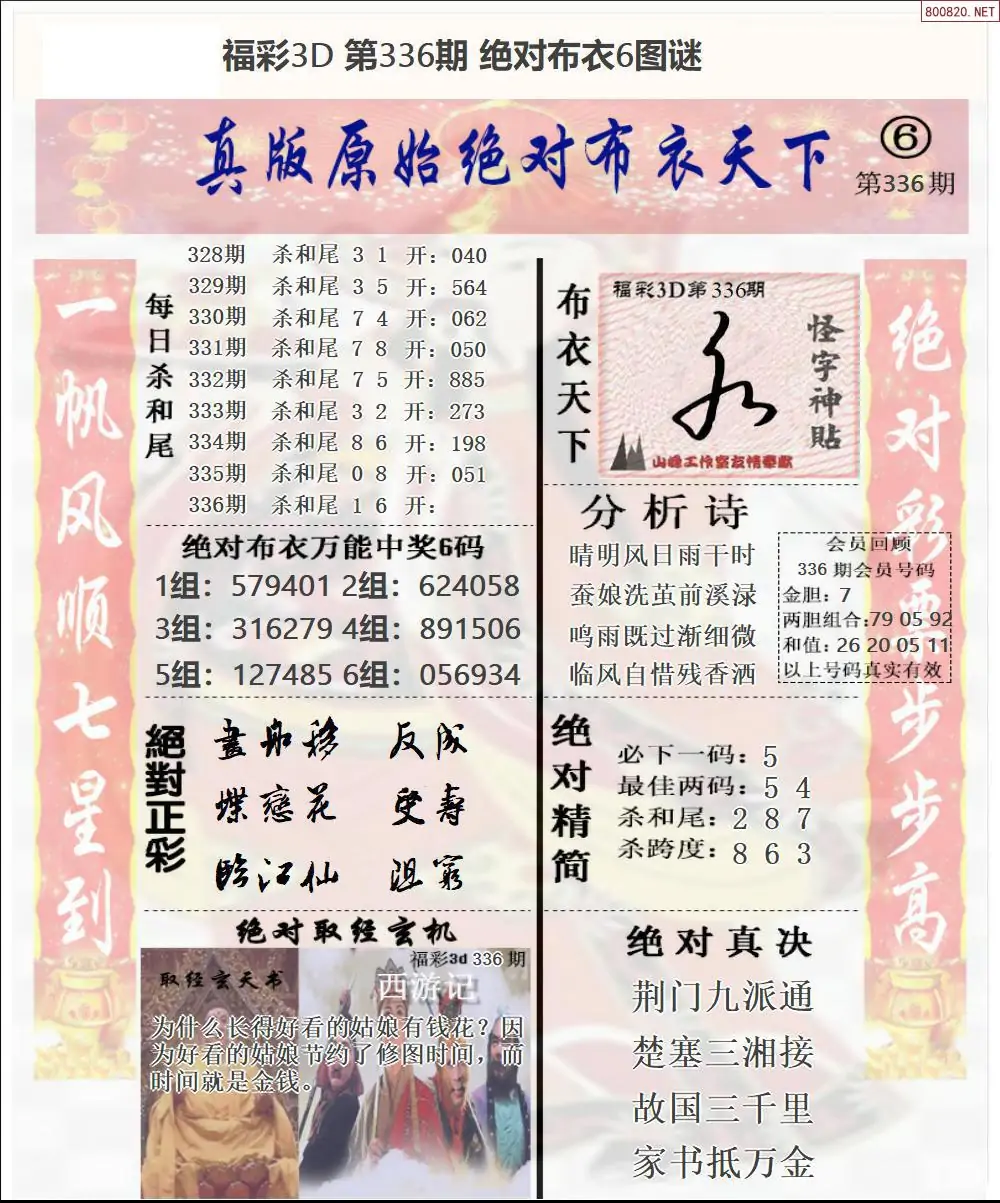 800820.NET
福彩3D 第336期 绝对布衣6图谜
真版原始绝对布衣天下
6
第336期
一帆风顺七星到
每日杀和尾
328期 杀和尾 3 1 开：040
329期 杀和尾 3 5 开：564
330期 杀和尾 7 4 开：062
331期 杀和尾 7 8 开：050
332期 杀和尾 7 5 开：885
333期 杀和尾 3 2 开：273
334期 杀和尾 8 6 开：198
335期 杀和尾 0 8 开：051
336期 杀和尾 1 6 开：
绝对布衣万能中奖6码
1组：579401 2组：624058
3组：316279 4组：891506
5组：127485 6组：056934
絕對正彩
畫船移 反成
蝶戀花 受壽
臨江仙 阻窮
绝对取经玄机
福彩3d 336 期
取经玄天书
西游记
为什么长得好看的姑娘有钱花？因
为好看的姑娘节约了修图时间，而
时间就是金钱。
布衣天下
福彩3D第336期
永
怪字神貼
山峰工作室友情奉献
分析诗
晴明风日雨干时
蚕娘洗茧前溪渌
鸣雨既过渐细微
临风自惜残香洒
会员回顾
336 期会员号码
金胆：7
两胆组合:79 05 92
和值：26 20 05 11
以上号码真实有效
绝对精简
必下一码：5
最佳两码：5 4
杀和尾：2 8 7
杀跨度：8 6 3
绝对真决
荆门九派通
楚塞三湘接
故国三千里
家书抵万金
绝对彩票步步高